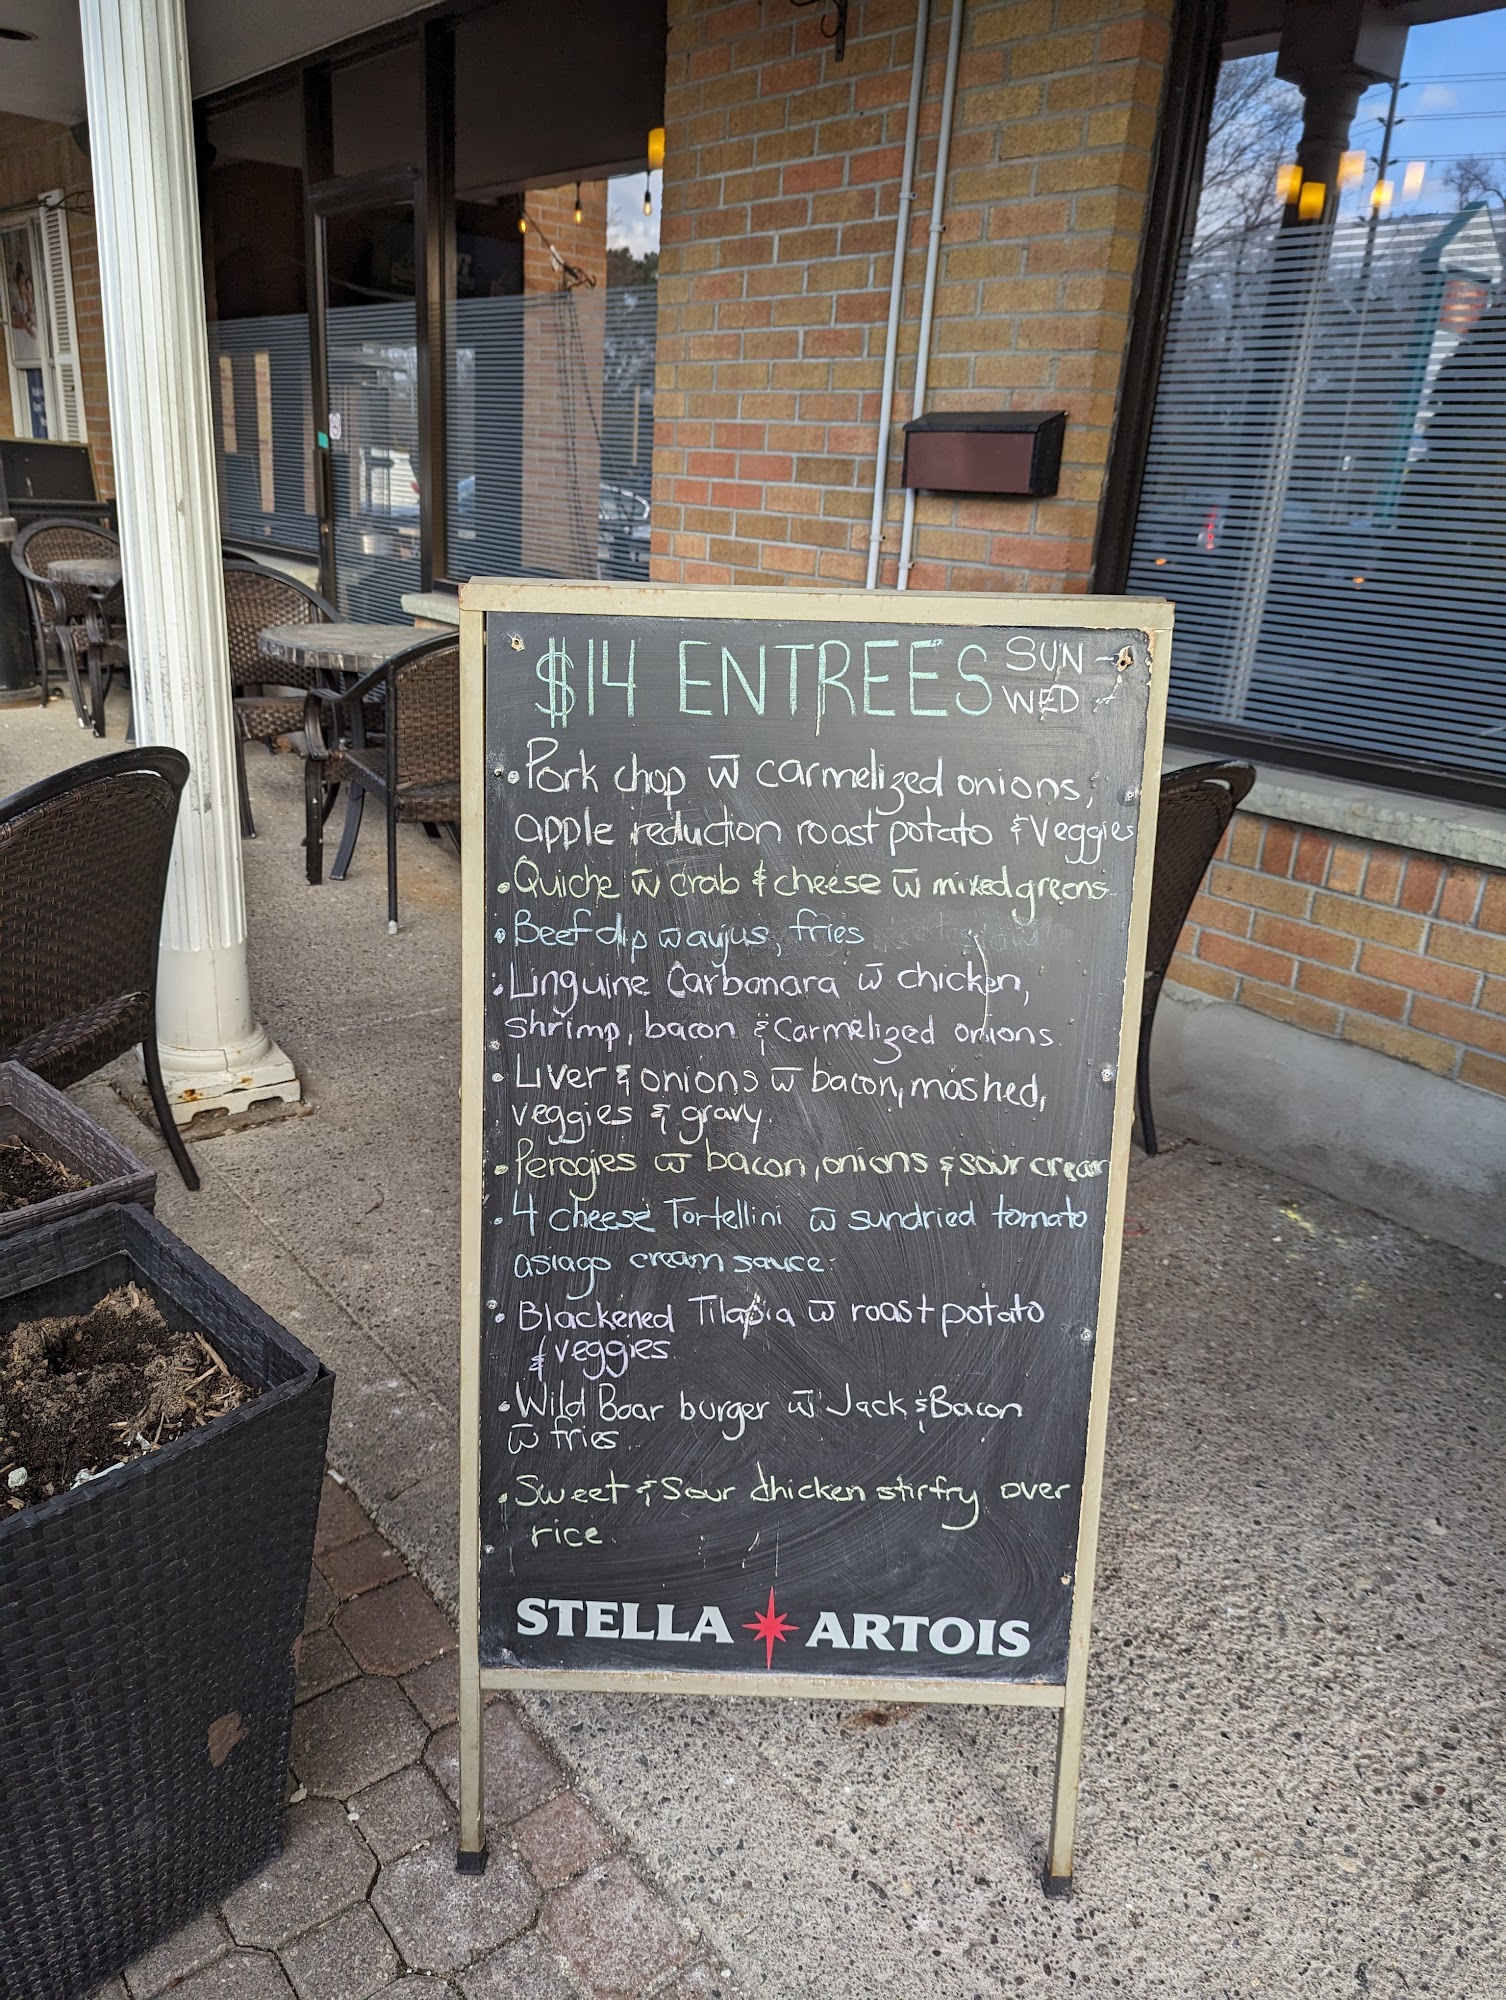 $14 ENTREES SUN -
WED
• Pork chop w̅ carmelized onions,
apple reduction roast potato & Veggies
• Quiche w̅ crab & cheese w̅ mixed greens
• Beef dip w̅ aujus, fries
• Linguine Carbonara w̅ chicken,
shrimp, bacon & Carmelized onions.
• Liver & onions w̅ bacon, mashed,
veggies & gravy
• Perogies w̅ bacon, onions & sour cream
• 4 cheese Tortellini w̅ sundried tomato
asiago cream sauce.
• Blackened Tilapia w̅ roast potato
& veggies
• Wild Boar burger w̅ Jack & Bacon
w̅ fries
• Sweet & Sour chicken stirfry over
rice.
STELLA ARTOIS